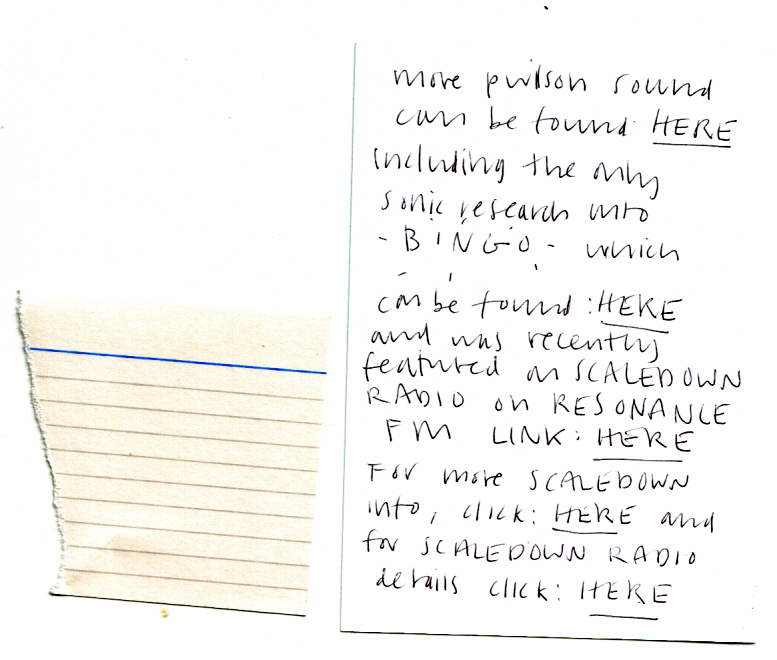 more pwilson sound
can be found: HERE
including the only
sonic research into
- BINGO - which
can be found: HERE
and was recently
featured on SCALEDOWN
RADIO on RESONANCE
FM LINK: HERE
For more SCALEDOWN
info, click: HERE and
for SCALEDOWN RADIO
details click: HERE